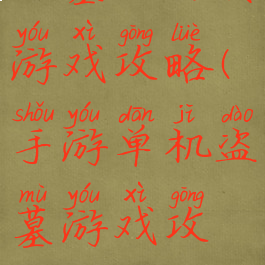 yóu xì gōng lüè
游戏攻略(
shǒu yóu dān jī dào
手游单机盗
mù yóu xì gōng
墓游戏攻